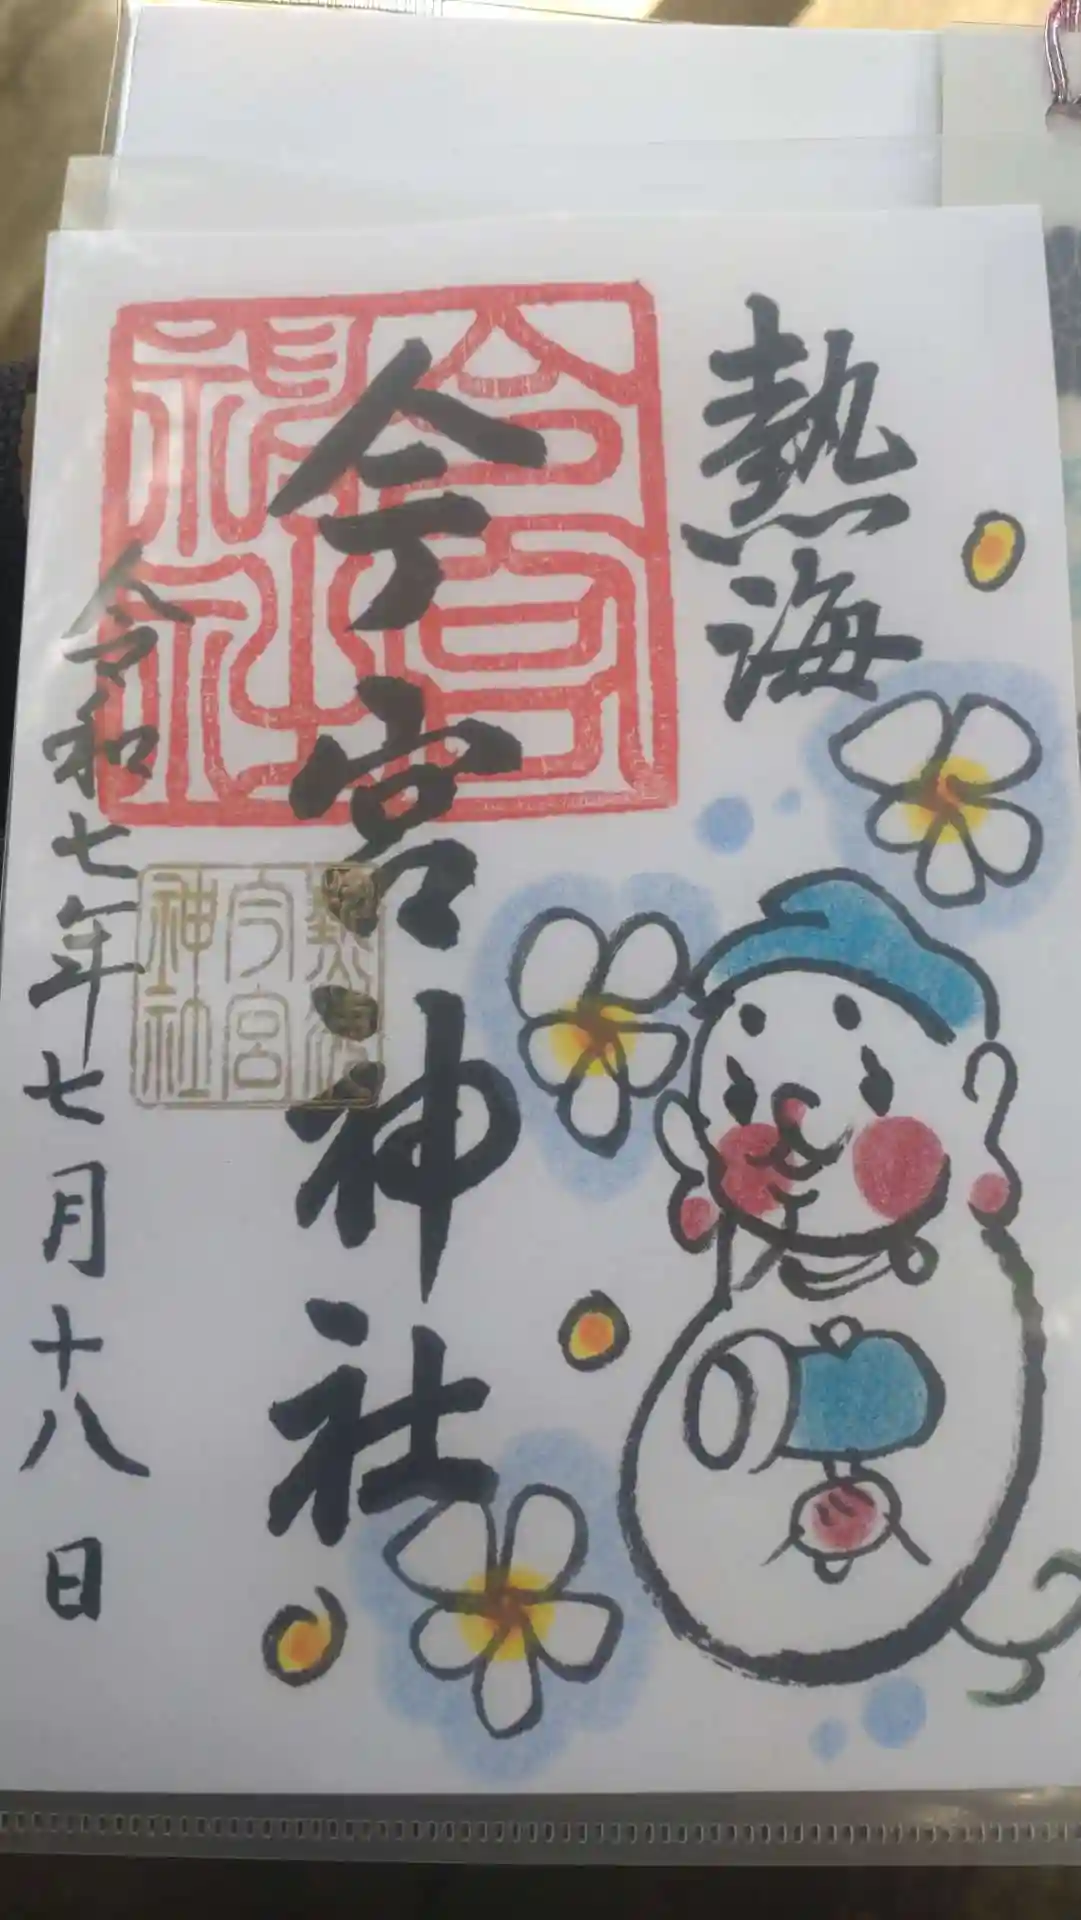 熱海
今宮神社
今宮神社
熱海今宮神社
令和七年七月十八日